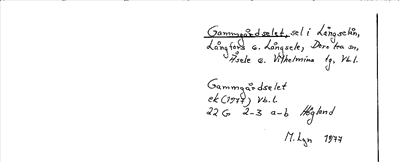 Gammgårdselet, sel i Långselån,
Långfors o. Långsele, Dorotea sn,
Åsele o. Vilhelmina tg, Vb.l.
Gammgårdselet
ek (1977) Vb.l.
22 G 2-3 a-b Höglund
M.Lgn 1977